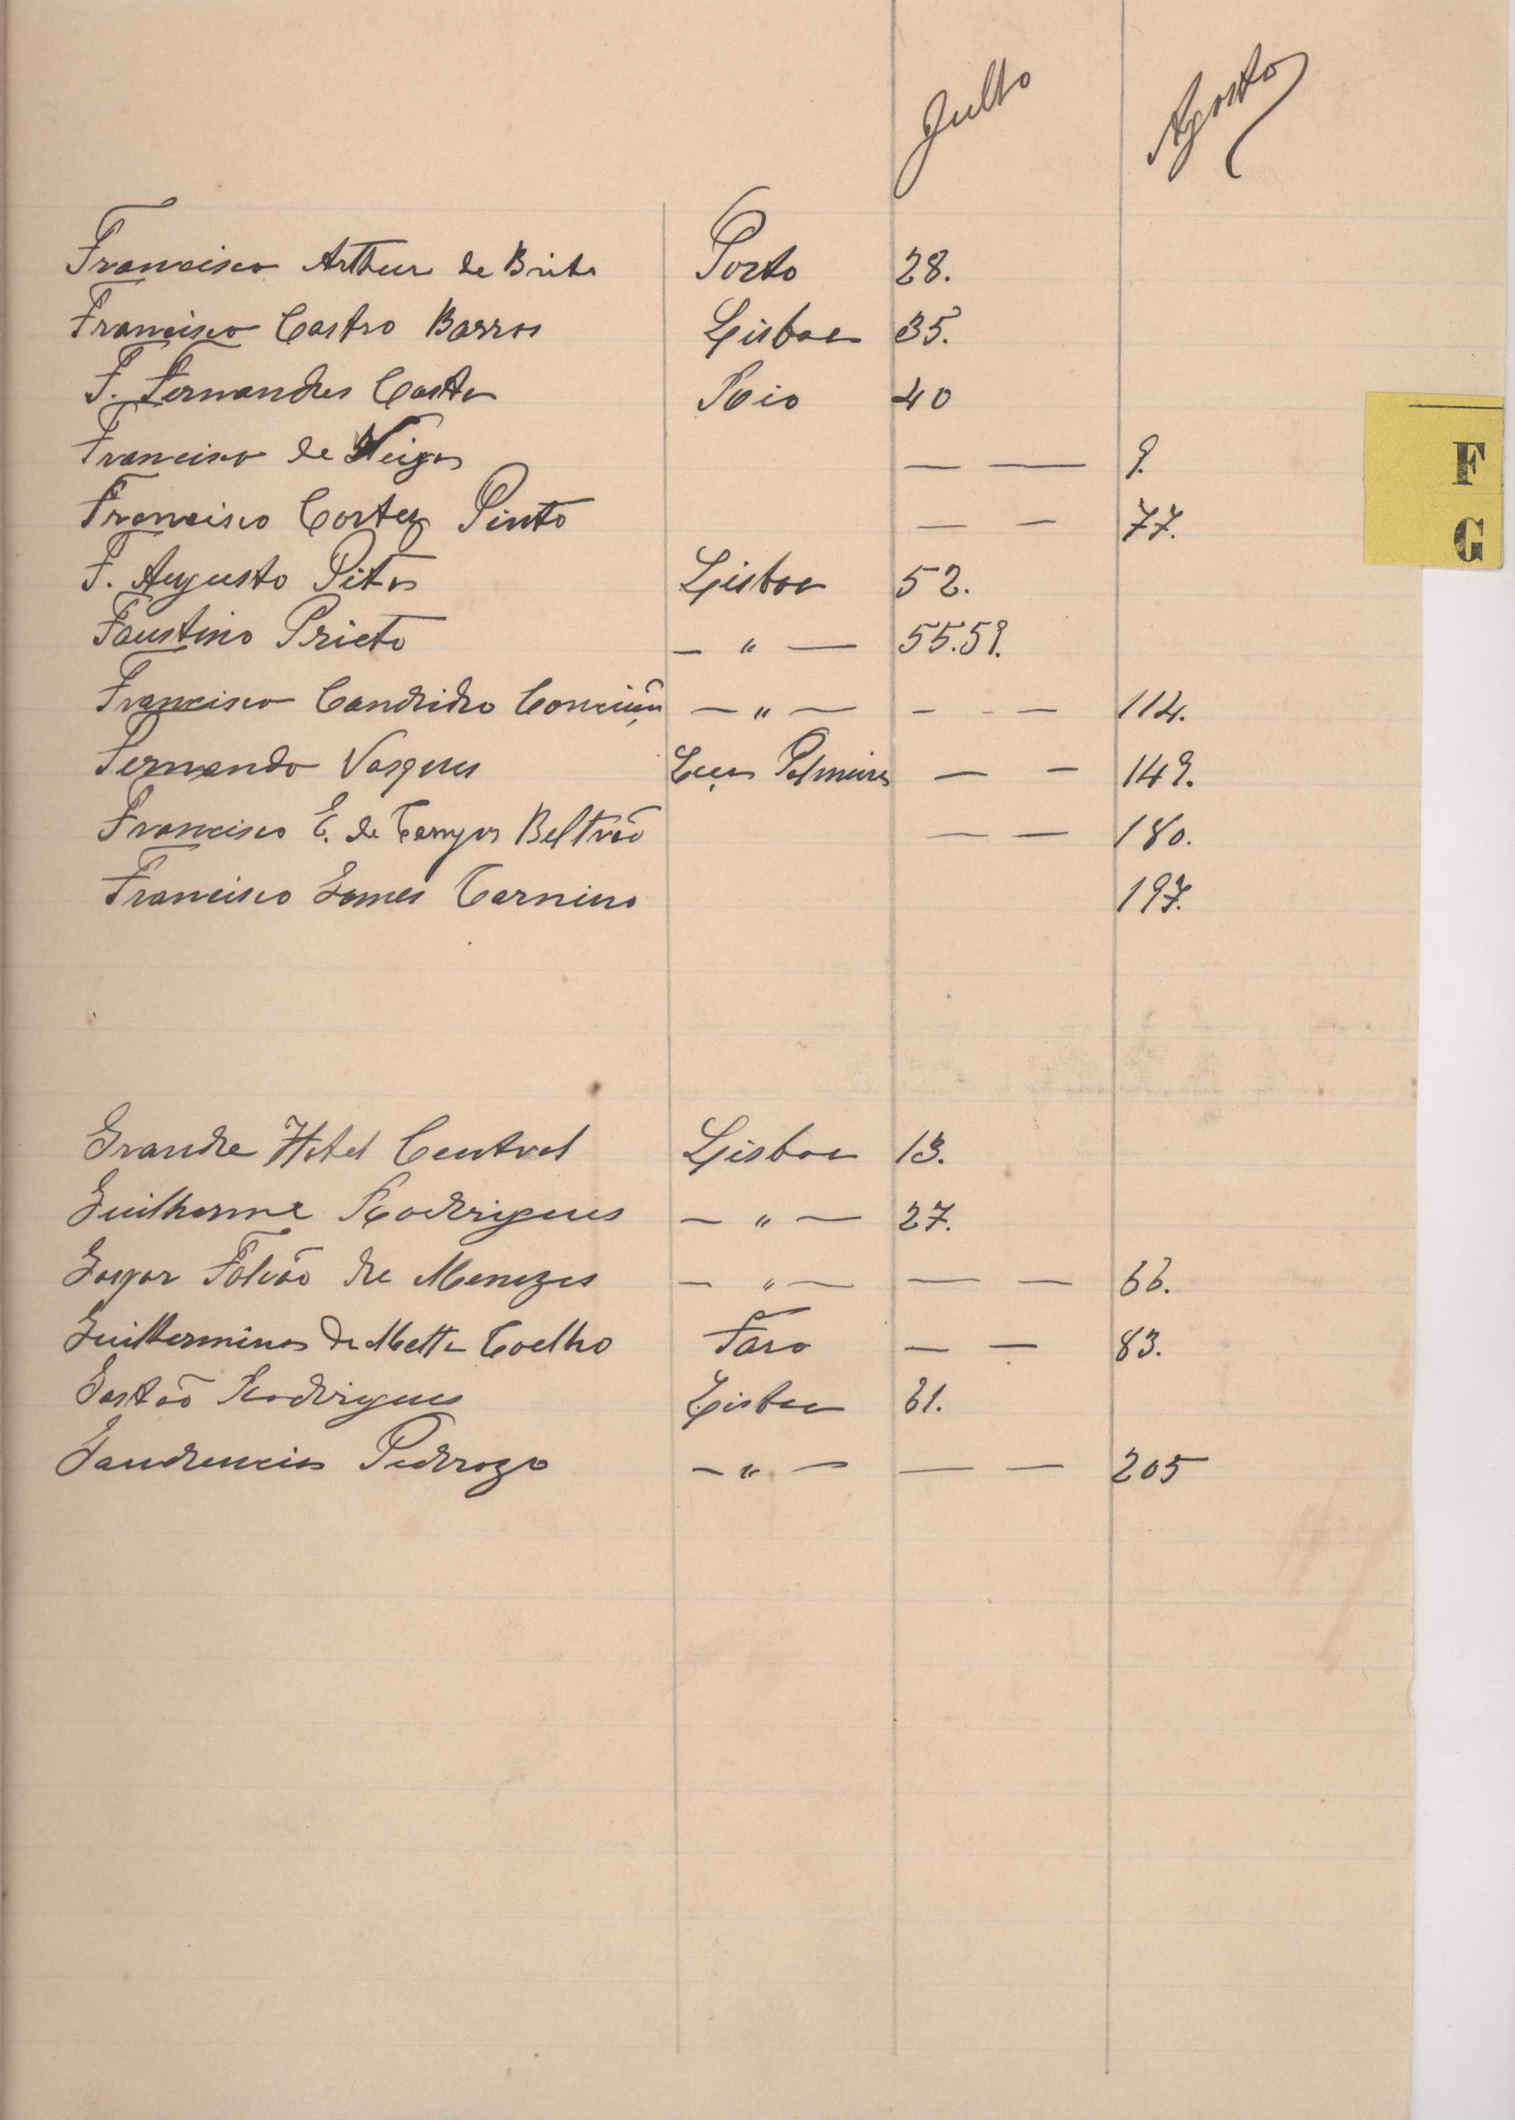 Julho Agosto
Francisco Arthur de Brito Porto 28.
Francisco Castro Barros Lisboa 35.
F. Fernandes Costa Rio 40
Francisco de Veiga — — 9.
Francisco Cortez Pinto — — 77.
F. Augusto Pitta Lisboa 52.
Faustino Prieto — " — 55.59.
Francisco Candido Conceição — " — - - — 114.
Fernando Vasques Palmeira — — 149.
Francisco E. de Campos Beltrão — — 180.
Francisco Gomes 197.
Grande Hotel Central Lisboa 13.
Guilherme Rodrigues — " — 27.
Gaspar Falcão de Menezes — " — — — 66.
Guilhermina de Matta Coelho Faro — — 83.
Gastão Rodrigues Lisboa 61.
Gaudencia Pedrozo — " — — — 205
F
G